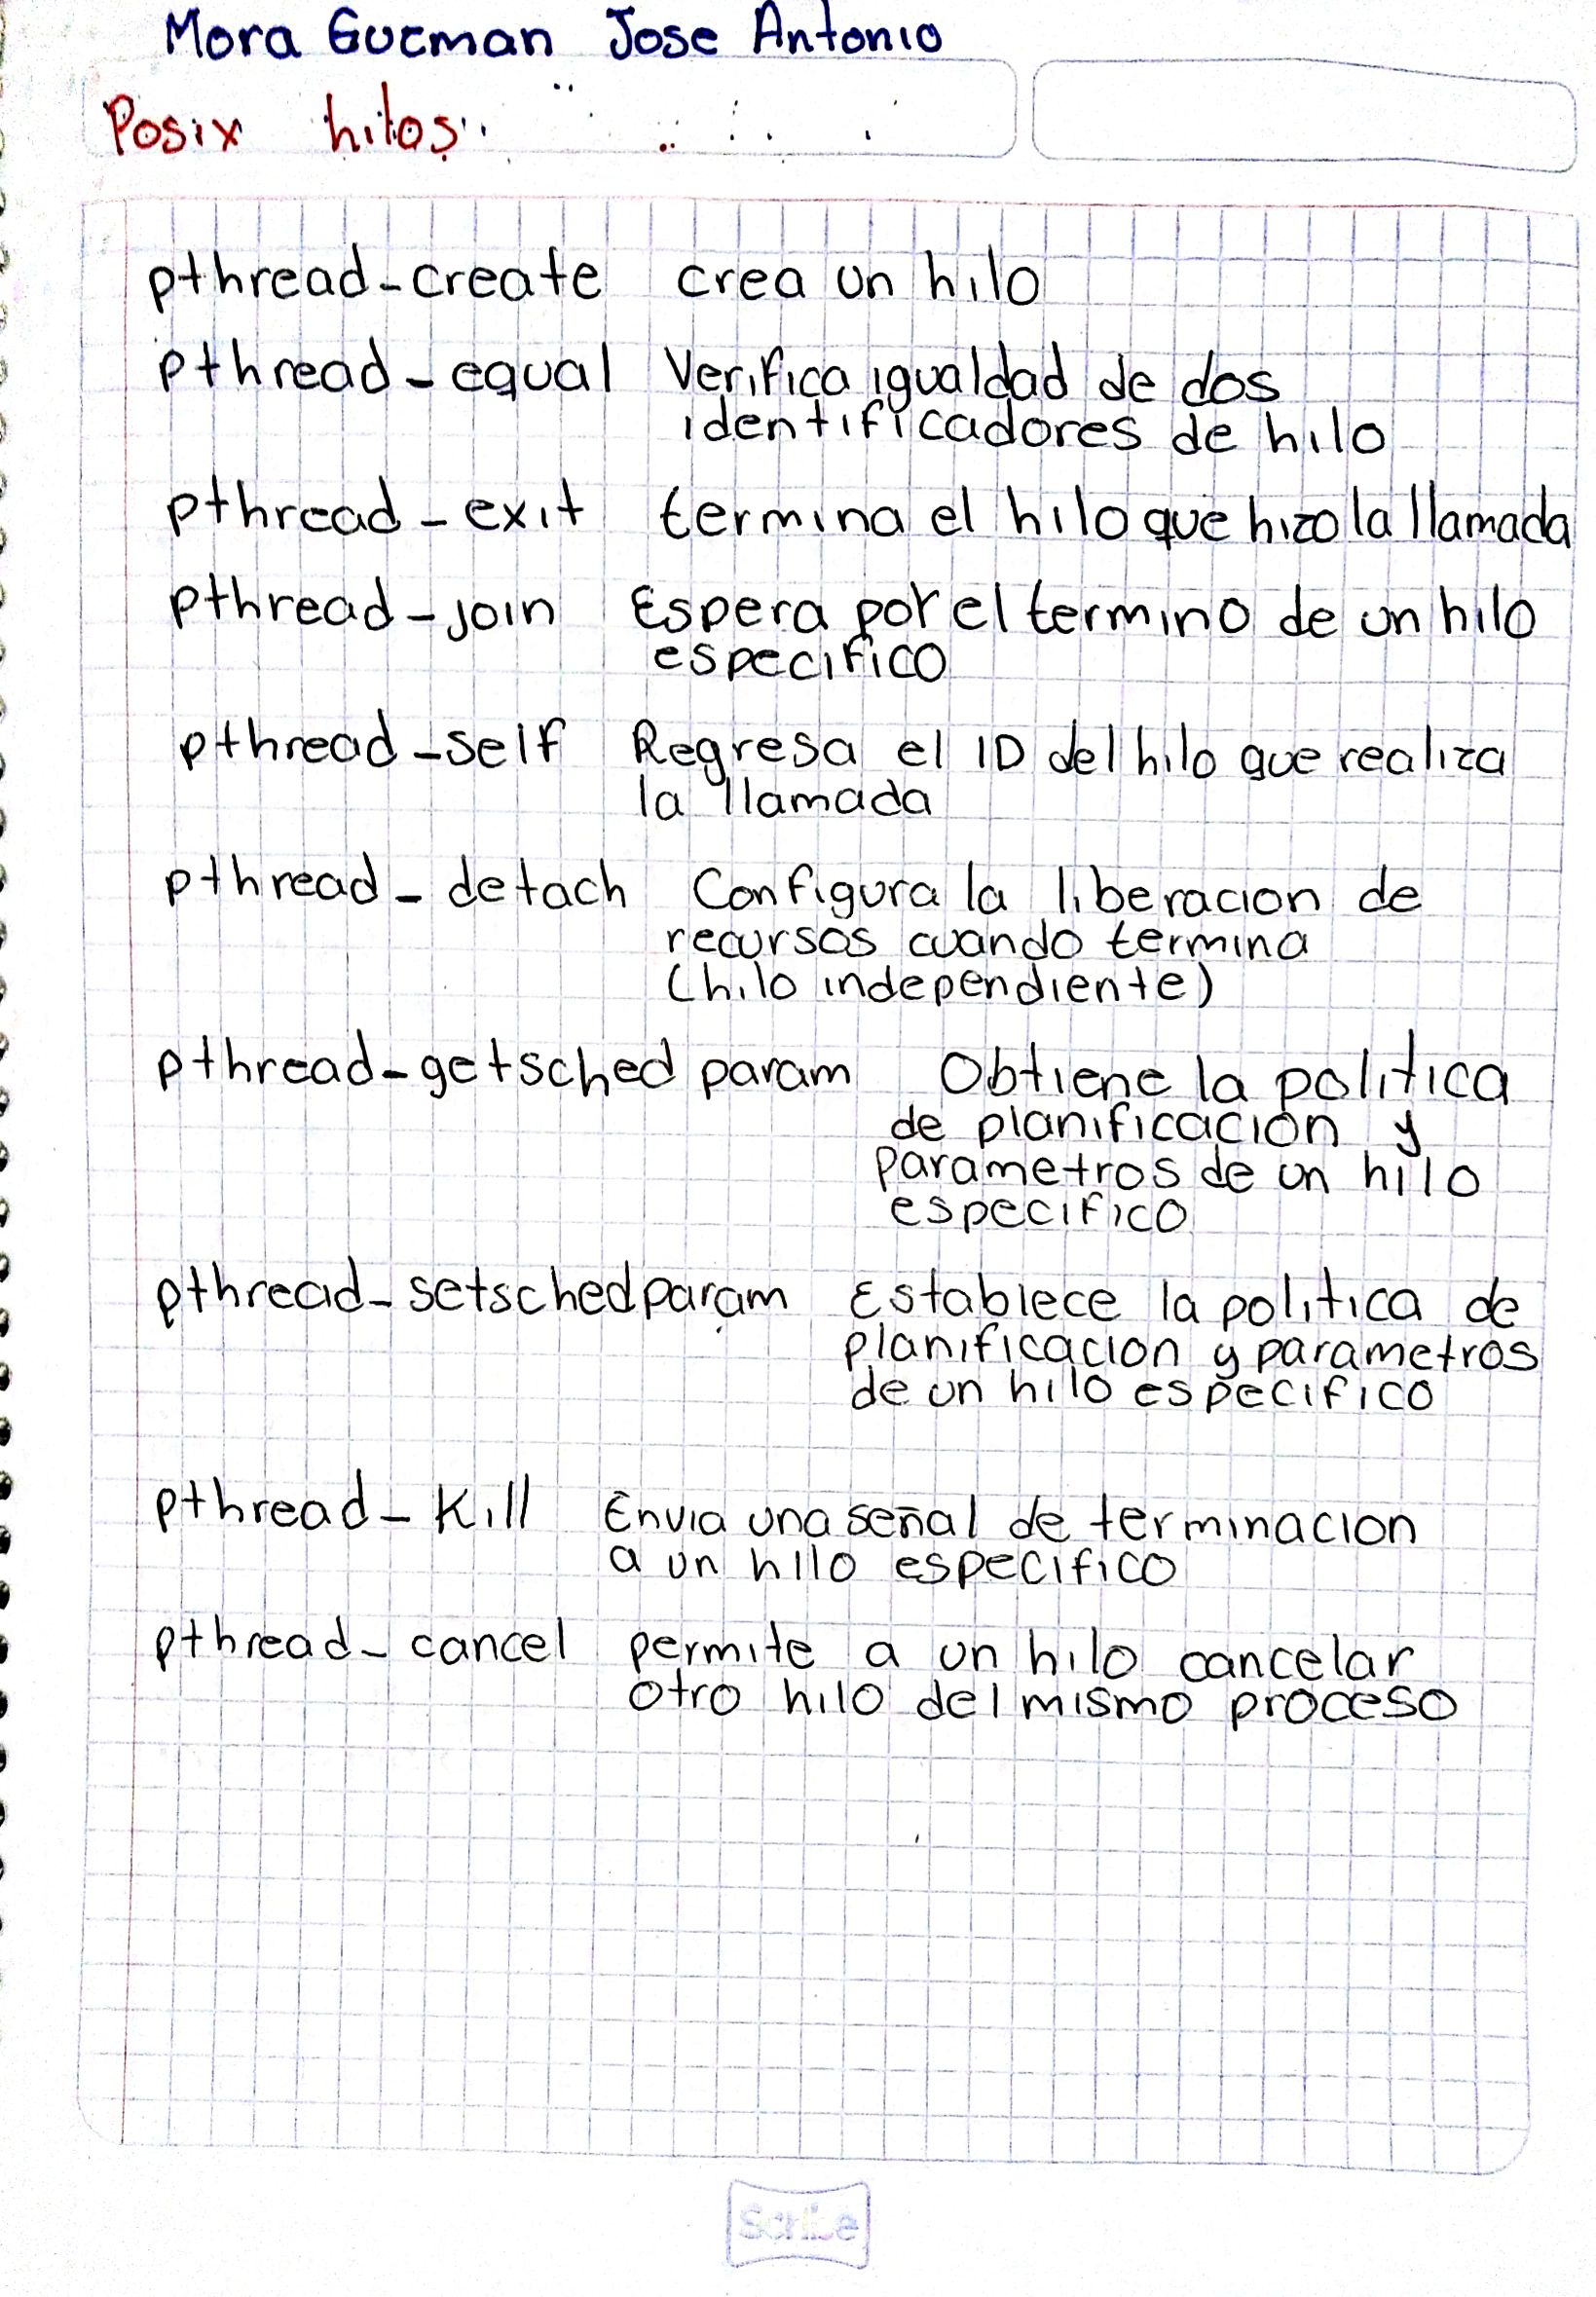 Mora Guzman Jose Antonio
Posix hilos
pthread_create crea un hilo
pthread_equal Verifica igualdad de dos
identificadores de hilo
pthread_exit termina el hilo que hizo la llamada
pthread_join Espera por el termino de un hilo
especifico
pthread_self Regresa el ID del hilo que realiza
la llamada
pthread_detach Configura la liberacion de
recursos cuando termina
(hilo independiente)
pthread_getsched param Obtiene la politica
de planificación y
parametros de un hilo
especifico
pthread_setschedparam Establece la politica de
planificacion y parametros
de un hilo especifico
pthread_Kill Envia una señal de terminacion
a un hilo especifico
pthread_cancel permite a un hilo cancelar
otro hilo del mismo proceso
Scribe